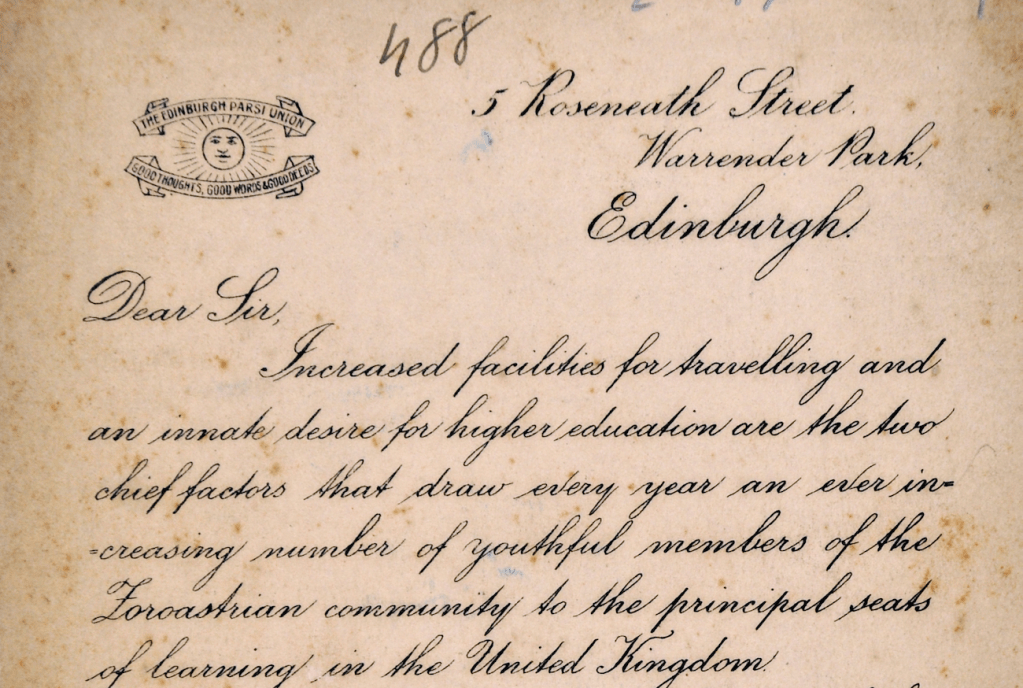 488
THE EDINBURGH PARSI UNION
GOOD THOUGHTS, GOOD WORDS & GOOD DEEDS
5 Roseneath Street.
Warrender Park,
Edinburgh.
Dear Sir,
Increased facilities for travelling and
an innate desire for higher education are the two
chief factors that draw every year an ever in=
=creasing number of youthful members of the
Zoroastrian community to the principal seats
of learning in the United Kingdom.